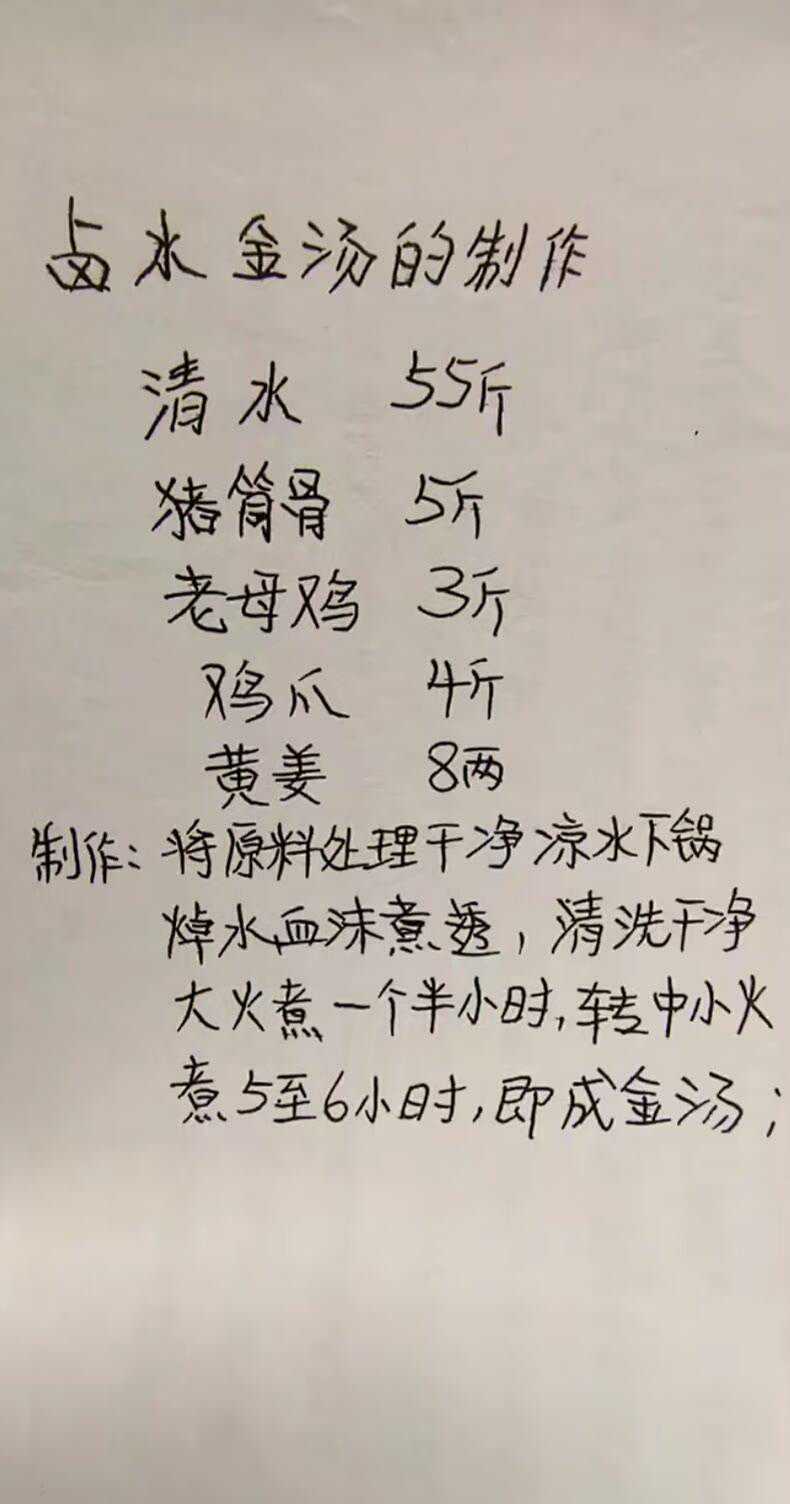 卤水金汤的制作
清水 55斤
猪筒骨 5斤
老母鸡 3斤
鸡爪 4斤
黄姜 8两
制作：将原料处理干净凉水下锅
焯水血沫煮透，清洗干净
大火煮一个半小时，转中小火
煮5至6小时，即成金汤；